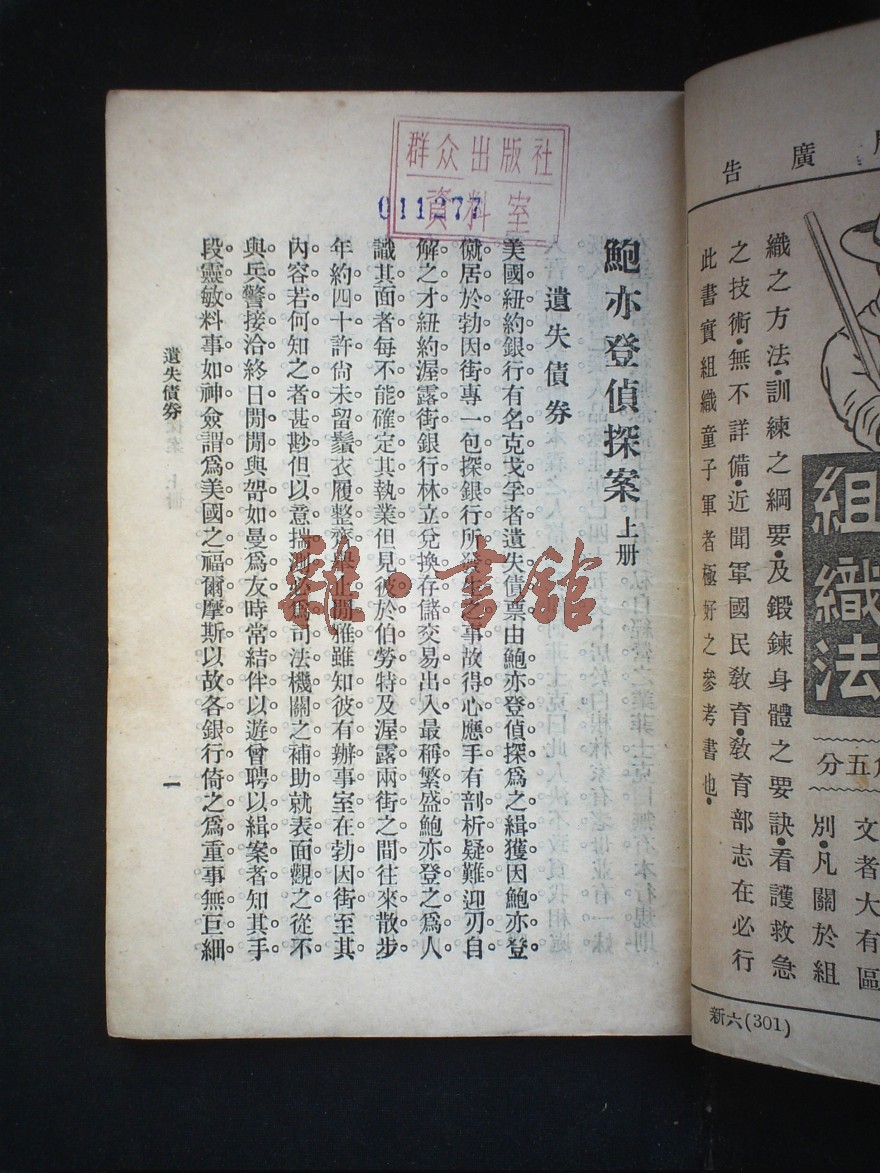 群众出版社
資料室
011277
鮑亦登偵探案 上册
遺失債券
美國紐約銀行有名克戈孚者遺失債票由鮑亦登偵探爲之緝獲因鮑亦登
僦居於勃因街專一包探銀行所發生之事故得心應手有剖析疑難迎刃自
解之才紐約渥露街銀行林立兌換存儲交易出入最稱繁盛鮑亦登之爲人
識其面者每不能確定其執業但見彼於伯勞特及渥露兩街之間往來散步
年約四十許尙未留鬚衣履整齊舉止閒雅雖知彼有辦事室在勃因街至其
內容若何知之者甚尠但以意揣測必爲司法機關之補助就表面觀之從不
與兵警接洽終日閒閒與哿如曼爲友時常結伴以遊曾聘以緝案者知其手
段靈敏料事如神僉謂爲美國之福爾摩斯以故各銀行倚之爲重事無巨細
遺失債券
一
雜·書館
廣告
織之方法·訓練之綱要·及鍛鍊身體之要訣·看護救急
之技術·無不詳備·近聞軍國民敎育·敎育部志在必行
此書實組織童子軍者極好之參考書也·
組織法
五分
文者大有區
別·凡關於組
新六(301)